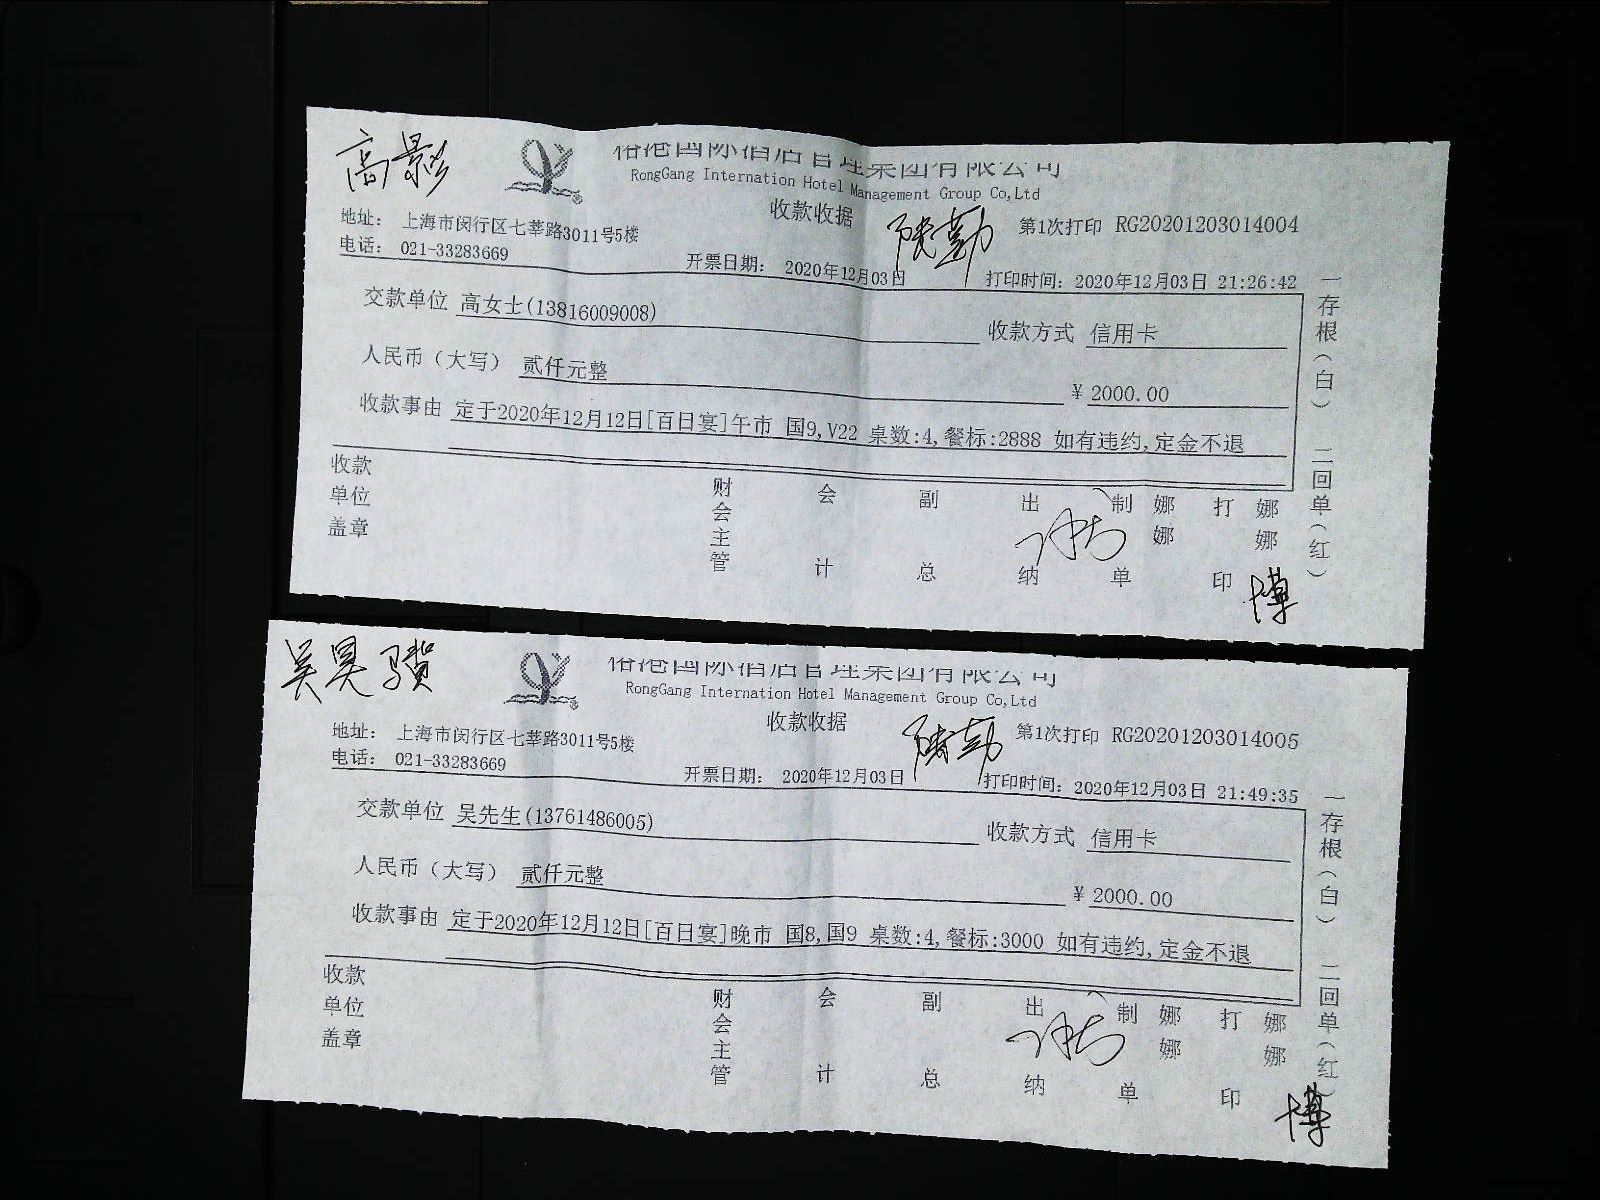 高景彡
裕港国际酒店管理集团有限公司
RongGang Internation Hotel Management Group Co,Ltd
收款收据
地址: 上海市闵行区七莘路3011号5楼
第1次打印 RG20201203014004
电话: 021-33283669
开票日期: 2020年12月03日
打印时间: 2020年12月03日 21:26:42
交款单位 高女士(13816009008)
收款方式 信用卡
人民币(大写) 贰仟元整
¥ 2000.00
收款事由 定于2020年12月12日[百日宴]午市 国9,V22 桌数:4,餐标:2888 如有违约,定金不退
收款单位盖章
财会主管
会计
副总
出纳
制单 娜娜
打印 娜娜
一存根(白) 二回单(红)
裕港国际酒店管理集团有限公司
RongGang Internation Hotel Management Group Co,Ltd
收款收据
地址: 上海市闵行区七莘路3011号5楼
第1次打印 RG20201203014005
电话: 021-33283669
开票日期: 2020年12月03日
打印时间: 2020年12月03日 21:49:35
交款单位 吴先生(13761486005)
收款方式 信用卡
人民币(大写) 贰仟元整
¥ 2000.00
收款事由 定于2020年12月12日[百日宴]晚市 国8,国9 桌数:4,餐标:3000 如有违约,定金不退
收款单位盖章
财会主管
会计
副总
出纳
制单 娜娜
打印 娜娜
一存根(白) 二回单(红)